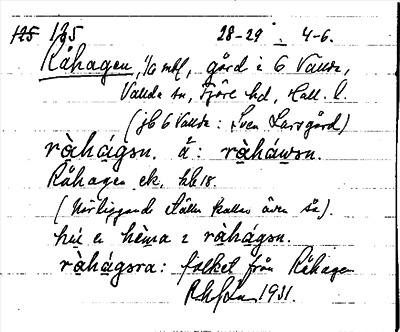 125 125 28-29 . 4-6.
Råhagen, 1/6 mtl, gård i 6 Vallda,
Vallda sn, Fjäre hd, Hall. l.
(jb 6 Vallda: Sven Larsgård)
ràhágsn. å: ràháwsn.
Råhagen ek. kb 18.
(Närliggande ställe kallas även så).
hú e hèma ı ràhágsn.
ràhágsra: folket från Råhagen
1931.